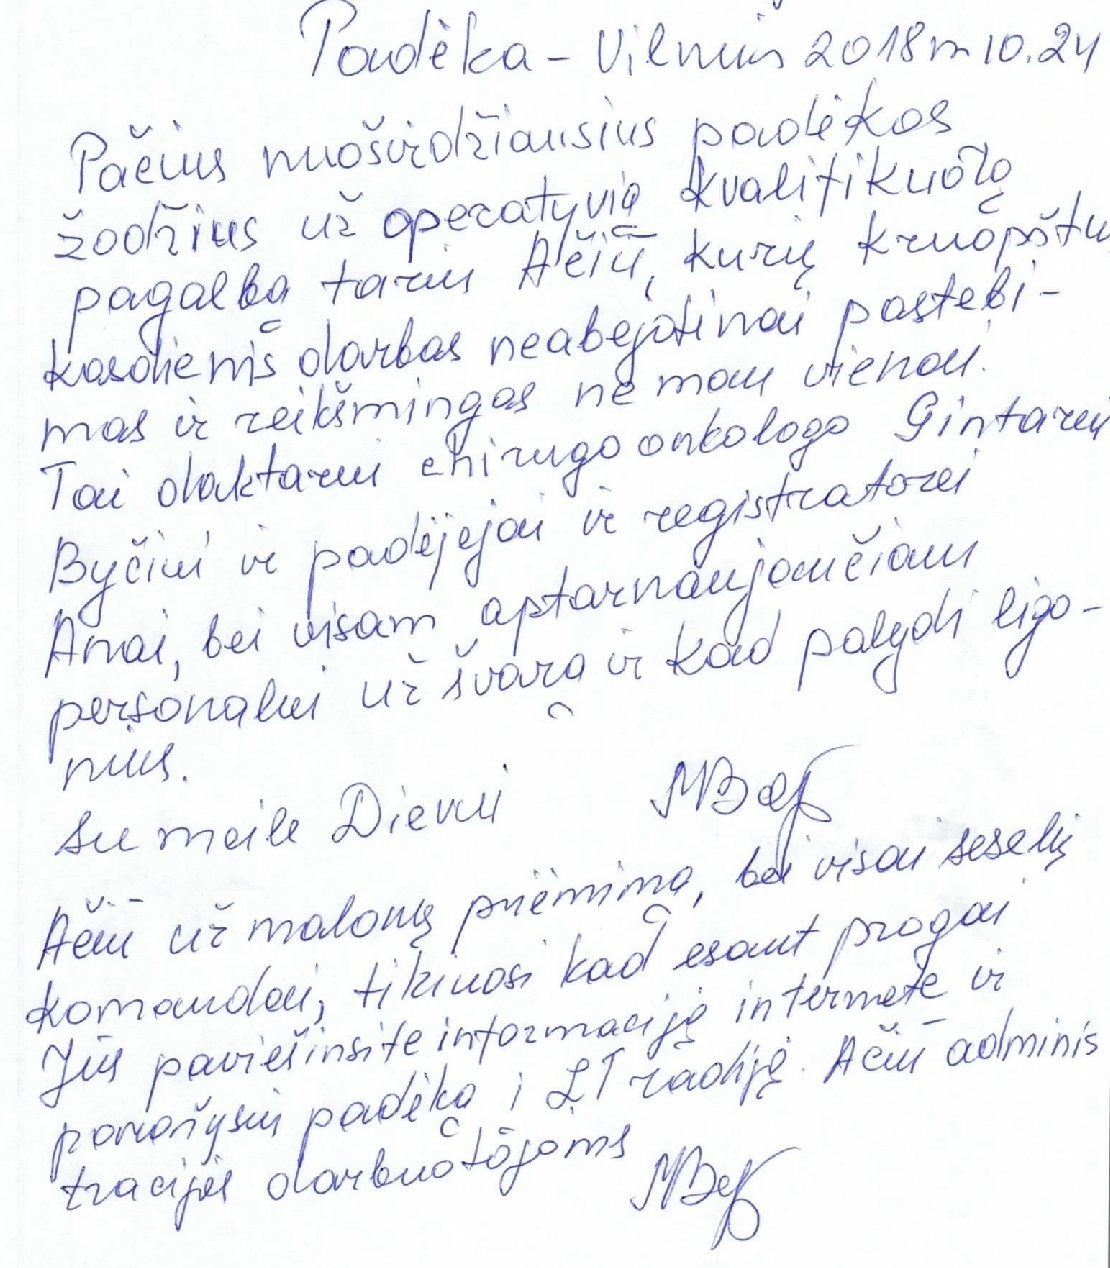 Padėka - Vilnius 2018m 10.24
Pačius nuoširdžiausius padėkos
žodžius už operatyvią kvalifikuotą
pagalbą tariu Ačiū, kurių kruopštus
kasdienis darbas neabejotinai pastebi-
mas ir reikšmingas ne man vienai.
Tai daktarui chirurgo onkologo Gintarui
Byčiui ir padėjėjai ir registratorei
Anai, bei visam aptarnaujančiam
personalui už švarą ir kad palydi ligo-
nius.
Su meile Dievui
Ačiū už malonų priėmimą, bei visai seselių
komandai, tikiuosi kad esant progai
Jūs paviešinsite informaciją internete ir
parašysiu padėką į LT radiją. Ačiū adminis
tracijos darbuotojams